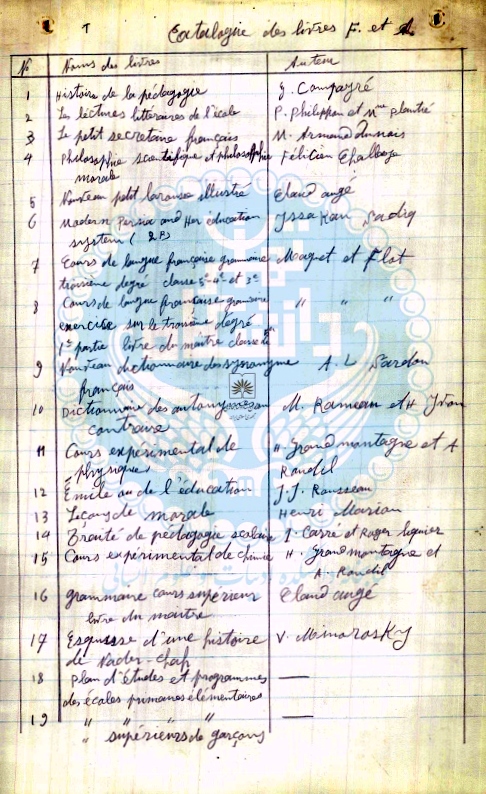 Catalogue des livres F. et A.
No Noms des livres Auteur
1 Histoire de la pédagogie J. Compayré
2 Les lectures litteraires de l'école P. Philippon et Mme Plantié
3 Le petit secretaire français M. Armand
4 Philosophie scientifique et philosophie Félicien Challaye
morale
5 Nouveau petit larousse illustré Claud augé
6 Modern Persia and Her education Issa Kan Sadiq
system ( 2 P)
7 Cours de langue française grammaire Maquet et Flot
troisieme degré classe 5e 4e et 3e
8 Cours de langue française grammaire " " "
exercise sur le troisième degré
1er partie livre du maitre classe
9 Nouveau dictionnaire des synonyme A. L Sardou
français
10 Dictionnaire des antonymes ou M. Rameau et H Yvon
contraire
11 Cours expérimental de H. Grandmontagne et A
physiques Raudil
12 Émile ou de l'éducation J. J. Rousseau
13 Leçons de morale Henri Marion
14 Traité de pédagogie scolaire I. Carré et Roger liquier
15 Cours expérimental de chimie H. Grandmontagne et
A. Raudil
16 grammaire cours superieur Claud augé
livre du maitre
17 Esquisse d'une histoire V. Minorosky
de Nader-chah
18 plan d'études et programmes —
des écoles primaires élémentaires
19 " " " " —
" supérieurs de garçons